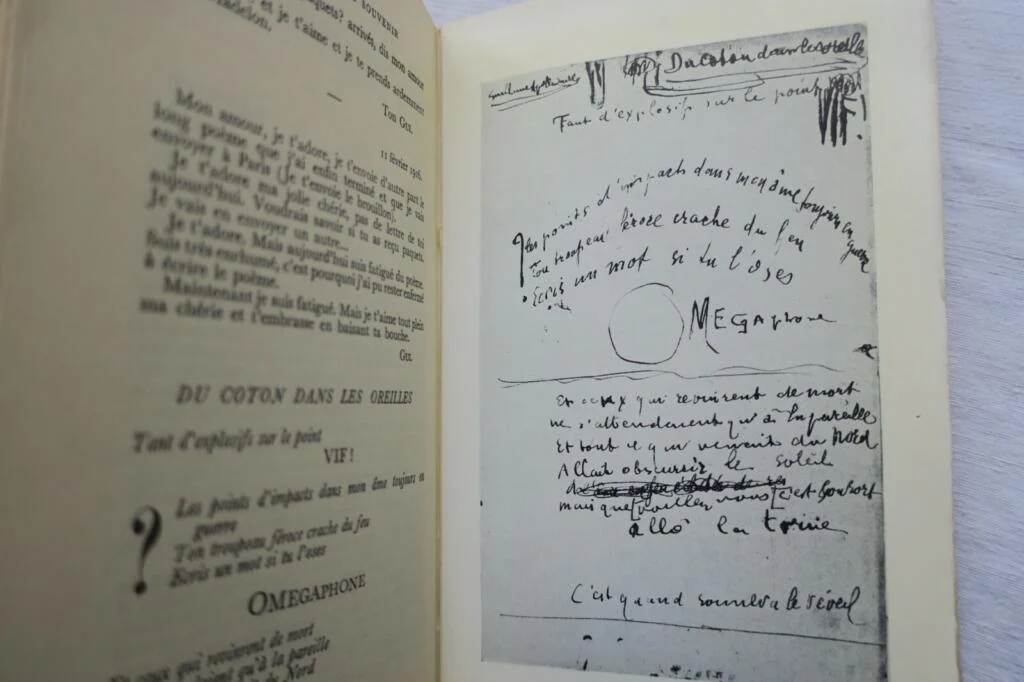 SOUVENIR
paquets? arrivés, dis mon amour
et je t'aime et je te prends ardemment
Madelon.
Ton Gui.
—
11 février 1916.
Mon amour, je t'adore, je t'envoie d'autre part le
long poème que j'ai enfin terminé et que je vais
envoyer à Paris (Je t'envoie le brouillon).
Je t'adore ma jolie chérie, pas de lettre de toi
aujourd'hui. Voudrais savoir si tu as reçu paquets.
Je vais en envoyer un autre...
Je t'adore. Mais aujourd'hui suis fatigué du poème.
Suis très enrhumé, c'est pourquoi j'ai pu rester enfermé
à écrire le poème.
Maintenant je suis fatigué. Mais je t'aime tout plein
ma chérie et t'embrasse en baisant ta bouche.
Gui.
DU COTON DANS LES OREILLES
Tant d'explosifs sur le point
VIF!
?
Les points d'impacts dans mon âme toujours en
guerre
Ton troupeau féroce crache du feu
Ecris un mot si tu l'oses
OMEGAPHONE
Et ceux qui revinrent de mort
qu'à la pareille
du Nord
Guillaume Apollinaire
Du coton dans les oreilles
Tant d'explosifs sur le point
VIF!
Les points d'impacts dans mon âme toujours en guerre
Ton troupeau féroce crache du feu
Ecris un mot si tu l'oses
OMEGAphone
Et ceux qui revinrent de mort
ne s'attendaient qu'à la pareille
Et tout ce qui venait du Nord
Allait obscurcir le soleil
mais que voulez vous c'est son sort
allô la truie
C'est quand sonnera le réveil